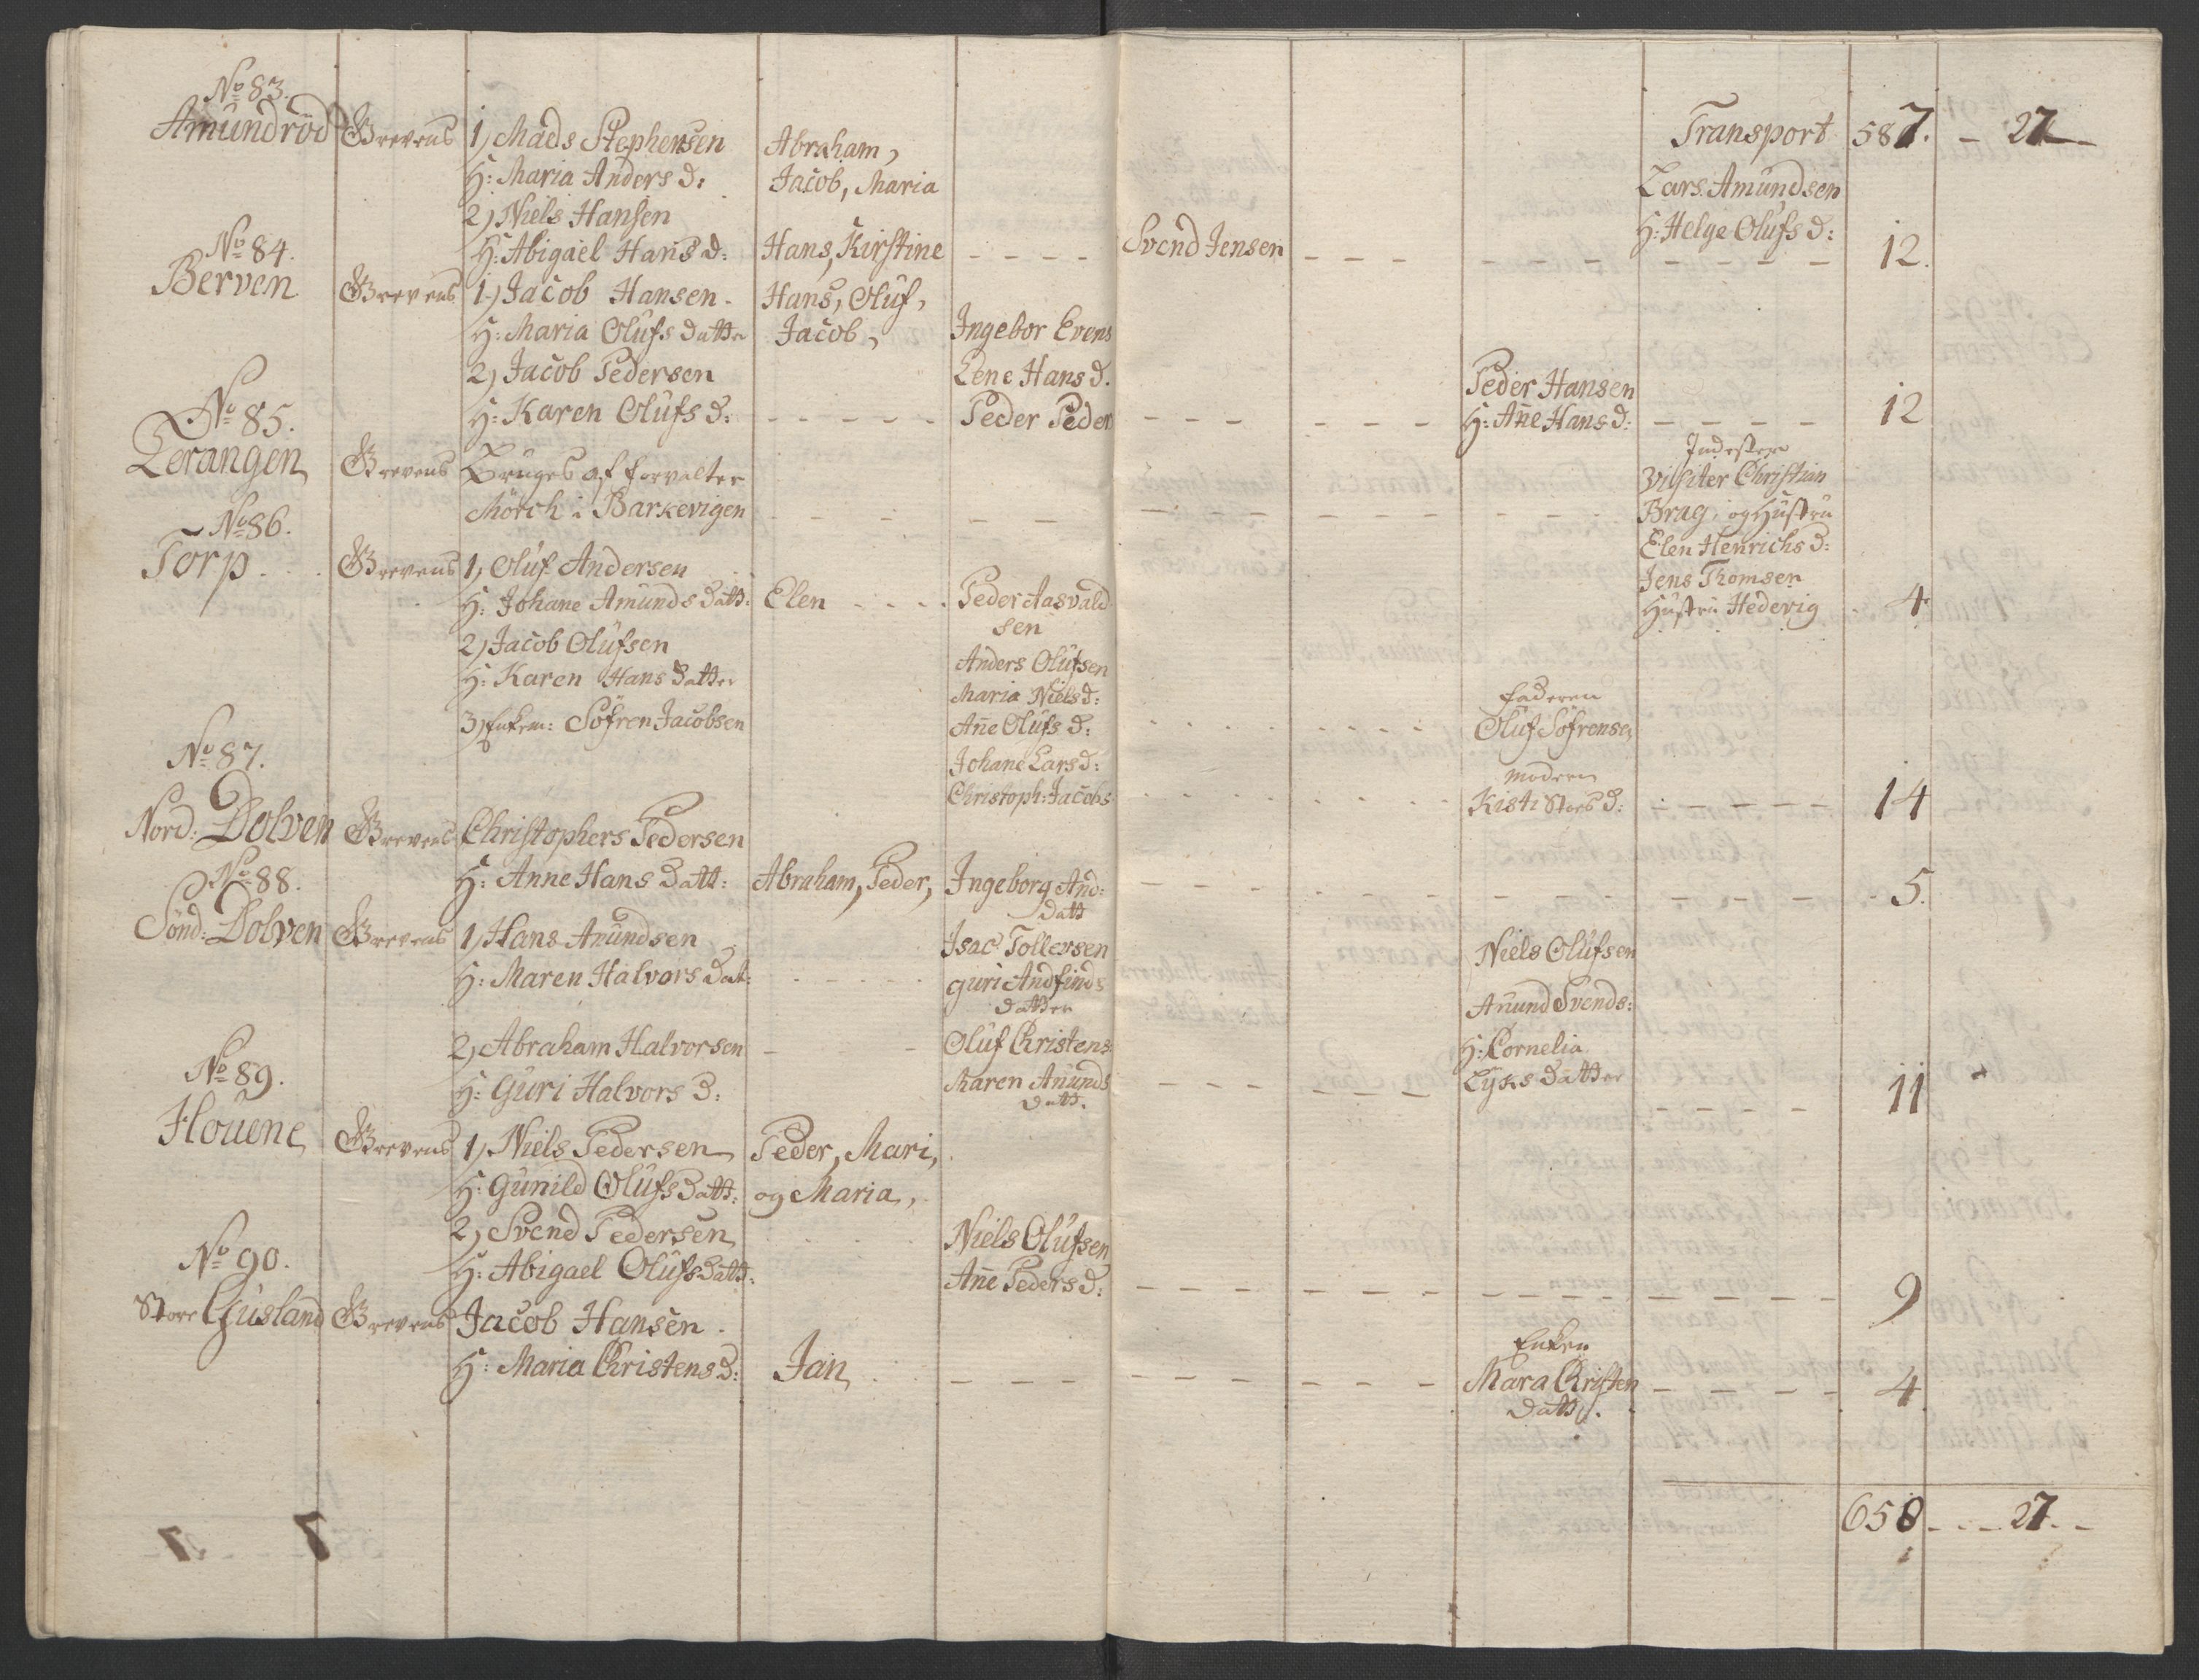 No 83.
Amundröd Grevens 1, Mads Stephensen Abraham, Transport 587. - 27
H: Maria Anders d: Jacob, Maria Lars Amundsen
2) Niels Hansen H: Helge Olufs d:
No 84.
H: Abigael Hans d: Hans, Kirstine - - - - Svend Jensen - - - - - - - - - - - 12.
Berven Grevens 1,) Jacob Hansen. Hans, Oluf,
H: Maria Olufs datter Jacob, Ingebor Evens
2) Jacob Pedersen Lene Hans d. Peder Hansen
No 85.
H: Karen Olufs d: - - - - - Peder Peder - - - - - H: Añe Hans d: - - - - 12
Lerangen Grevens Bruges af Forvalter Inderster
Mörch i Barkevigen - - - - - - - - - - - Visiter Christian
No 86. Brag, og Hustru
Torp. . . Grevens 1, Oluf Andersen Elen Henrichs d:
H: Johane Amunds datt: Elen . . . . Peder Aasvald Jens Thomsen
sen Hustru Hedevig - 4
2) Jacob Olufsen Anders Olufsen
H: Karen Hans datter Maria Niels d: Faderen
3) Enkem: Söfren Jacobsen Añe Olufs d: . . . . . . . Oluf Söfrensen
No 87. Johane Lars d: modern
Christoph: Jacobs . . . . . . . Kisti d: - - - - - 14
Nord: Dolven Grevens Christophers Pedersen
No 88.
H: Anne Hans datt: Abraham, Peder, Ingeborg And: - - - - - - - - - - - - - 5.
datt
Sönd: Dolven Grevens 1, Hans Anundsen Isac Tollersen Niels Olufsen
H: Maren Halvors dat: - - - - - guri Andfinds
datter Anund Svends:
2, Abraham Halvorsen - - Oluf Christens: H: Cornelia
No 89.
H: Guri Halvors d: Maren Anunds - - - - - - - Lyks datter - - - - 11
datt.
Houene Grevens 1, Niels Pedersen Peder, Mari,
H: Gunild Olufs datt: og Maria,
2, Svend Pedersen Niels Olufsen
No 90.
H: Abigael Olufsdatt: Añe Peders d: - - - - - - - - - - - - - 9
Store Gusland Grevens Jacob Hansen. Enken
H: Maria Christens d: Jan - - - - - - - - - Mara Christen - - - - 4
datt.
658 - - - 27. -